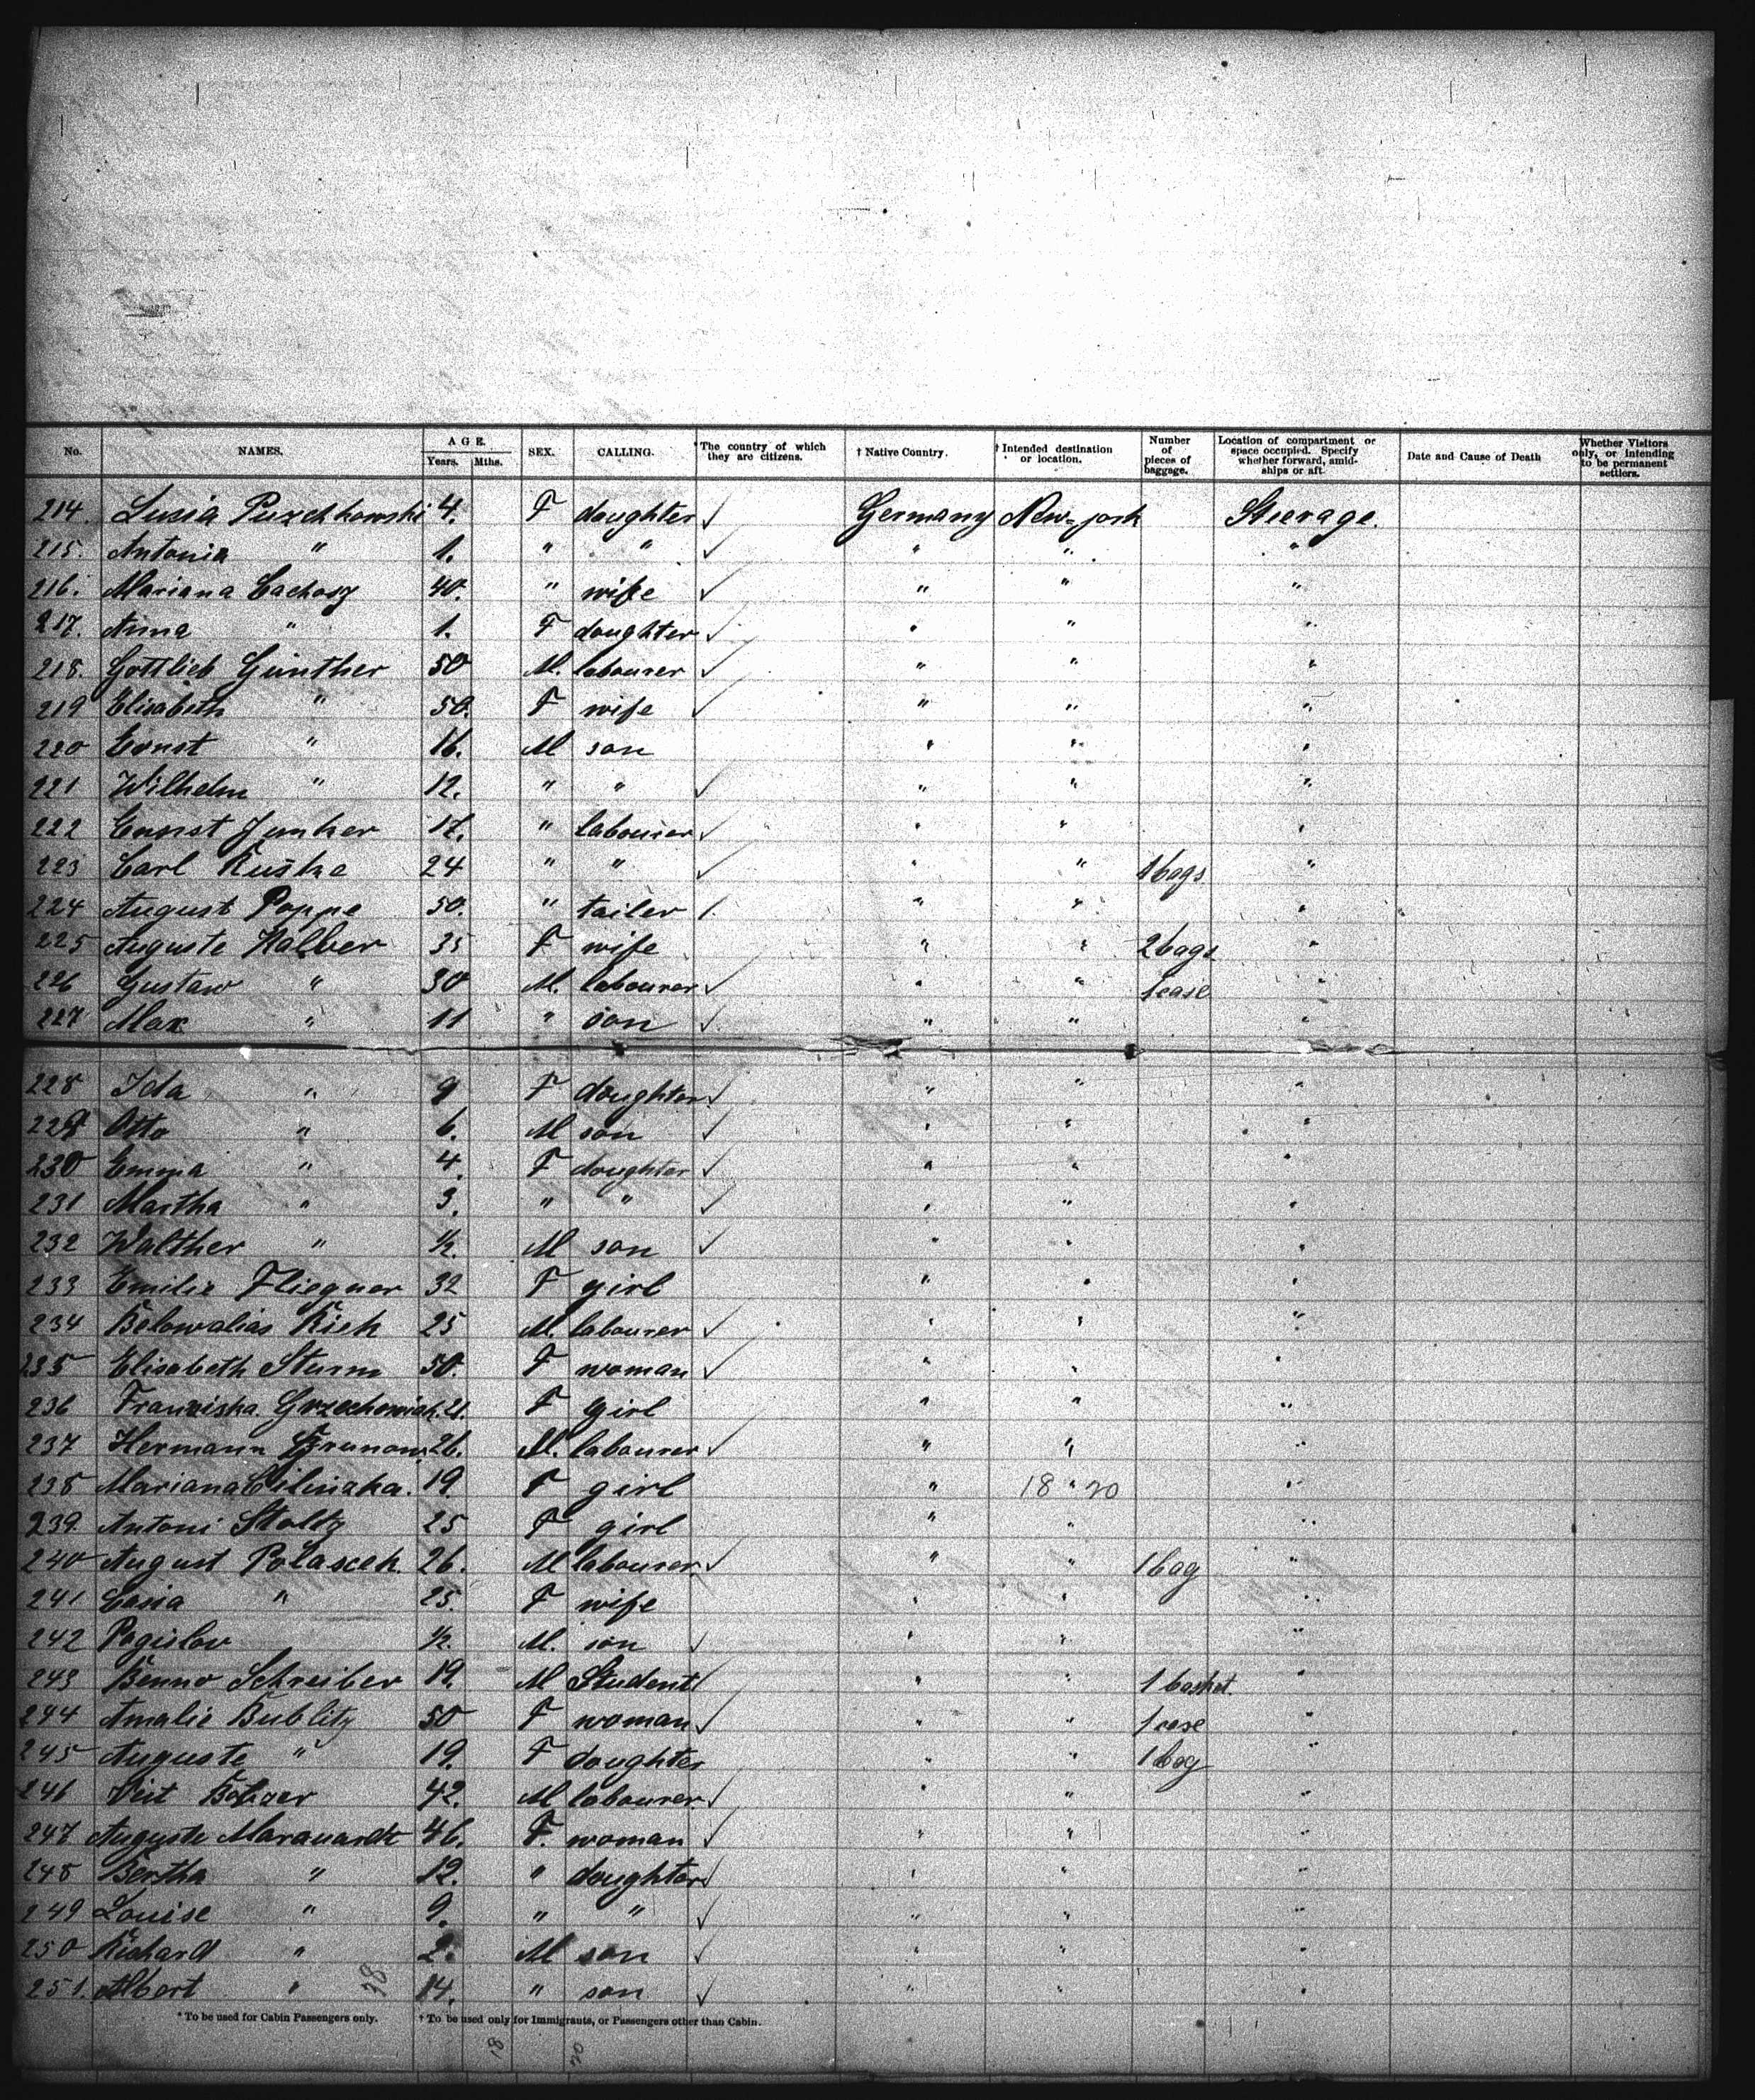 No. NAMES. AGE. Years. Mths. SEX. CALLING. *The country of which they are citizens. † Native Country. † Intended destination or location. Number of pieces of baggage. Location of compartment or space occupied. Specify whether forward, amidships or aft. Date and Cause of Death Whether Visitors only, or intending to be permanent settlers.
214. Lusia 4. F daughter ✓ Germany New-york Steerage.
215. Antonia " 1. " " ✓ " " "
216. Mariana 40. " wife ✓ " " "
217. Anna " 1. F daughter ✓ " " "
218. Gottlieb Günther 50 M. labourer ✓ " " "
219 Elisabeth " 50. F wife ✓ " " "
220 Ernst " 16. M son " " "
221 Wilhelm " 12. " " ✓ " " "
222 Ernst Junker 17. " labourer ✓ " " "
223 Carl 24 " " ✓ " " 1 bags "
224 August Poppe 50. " tailer " " "
225 Auguste Halber 35 F wife " " 2 bags "
226 Gustaw " 30 M. labourer ✓ " " 1 case "
227 Max " 11 " son ✓ " " "
228 Ida " 9 F daughter ✓ " " "
229 Otto " 6. M son ✓ " " "
230 Emma " 4. F daughter ✓ " " "
231 Martha " 3. " " ✓ " " "
232 Walther " ½. M son ✓ " " "
233 Emilie Fliegner 32 F girl " " "
234 25 M. labourer ✓ " " "
235 Elisabeth Sturm 50. F woman ✓ " " "
236 Franziska 21. F girl " " "
237 Hermann 26. M. labourer ✓ " " "
238 Mariana 19. F girl " 18 " 20 "
239. Antoni Stoltz 25 F girl " " "
240 August Polascek. 26. M labourer. ✓ " " 1 bag "
241 " 25. F wife " " "
242 ½. M. son ✓ " " "
243 Benno Schreiber 19. M Student ✓ " " 1 basket. "
244 Amalie Bublitz 50 F woman ✓ " " 1 case "
245 Auguste " 19. F daughter " " 1 bag "
246 Veit 42. M labourer. ✓ " " "
247 Auguste Marquardt 46. F. woman ✓ " " "
248 Bertha " 12. " daughter ✓ " " "
249 Louise " 9. " " ✓ " " "
250 Richard " 2. M son ✓ " " "
251. Albert " 14. " son ✓ " " "
* To be used for Cabin Passengers only. † To be used only for Immigrants, or Passengers other than Cabin.
18 20